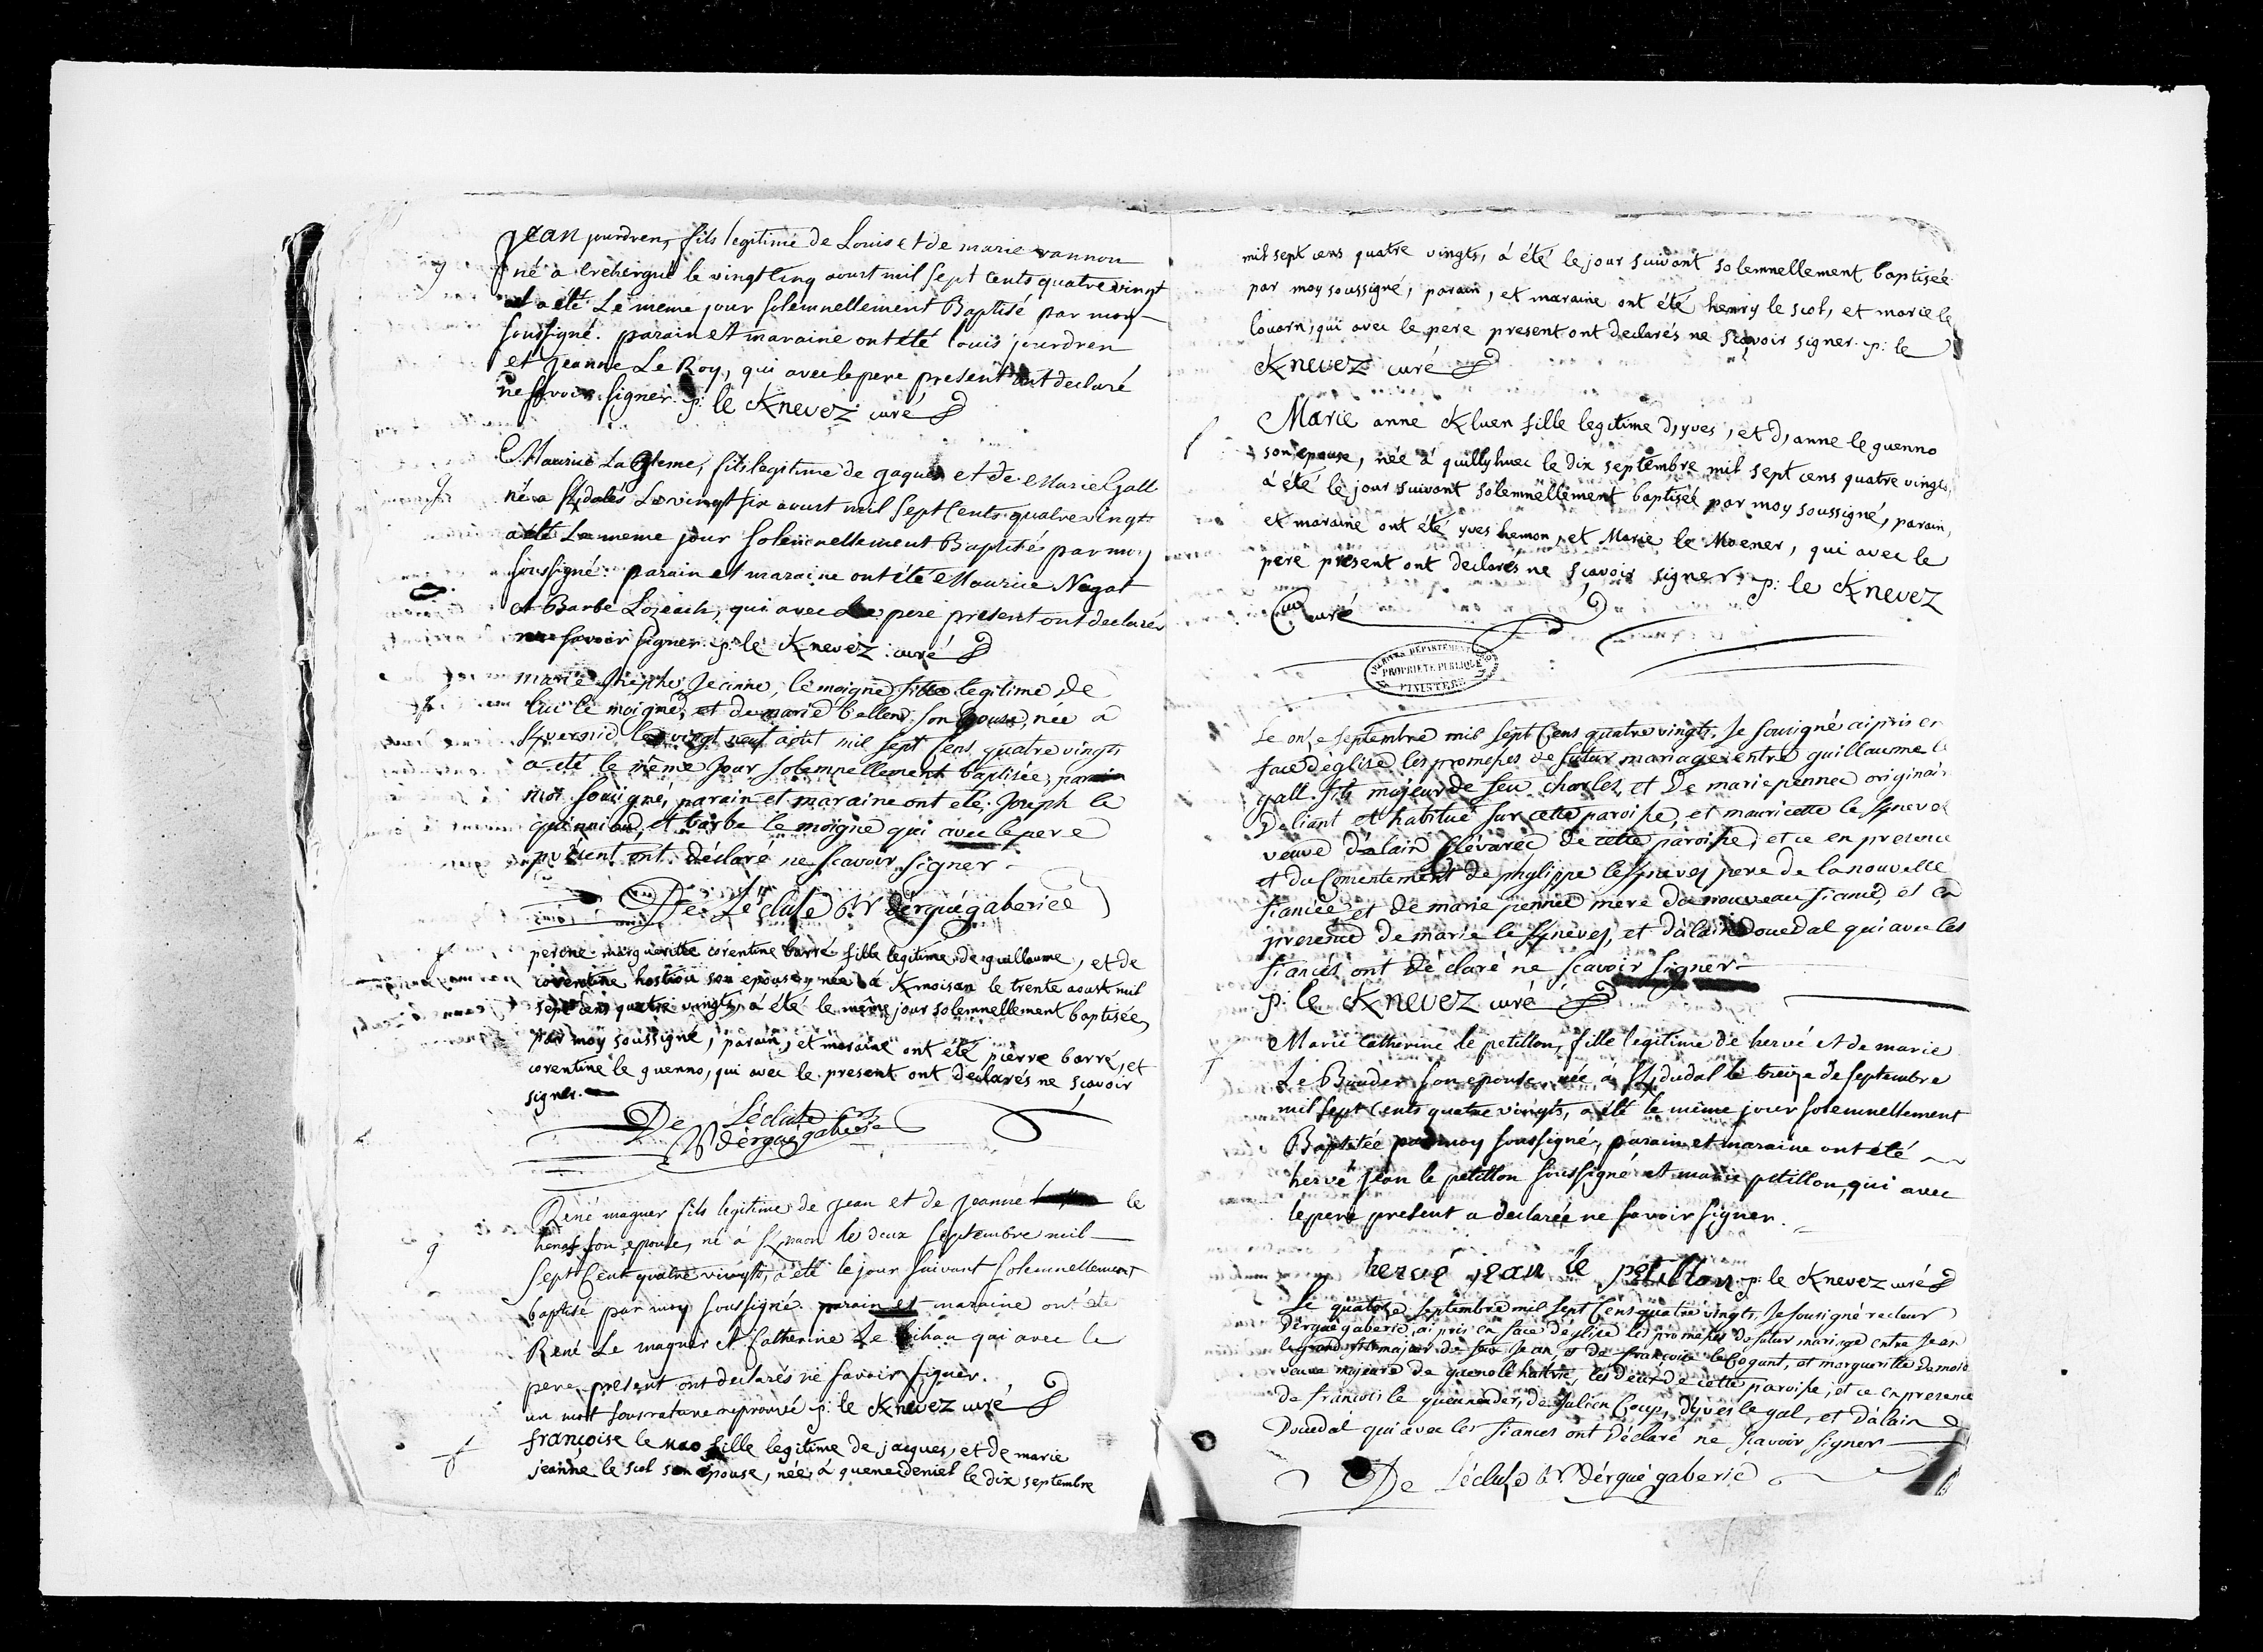 Jean jourdren, fils legitime de Louis et de marie vannou
né a crehergué le vingt cinq aoust mil sept cents quatre vingt
et a été Le meme jour solemnellement Baptisé par moy
soussigné. parain et maraine ont été louis jourdren
et jeanne Le Roy, qui avec le pere present ont declaré
ne savoir signer. p: le Knevez curé
Maurice La , fils legitime de jaques et de Marie Gall
né a Le vingt six aoust mil sept Cents quatre vingts
a été Le meme jour solemnellement Baptisé par moy
soussigné. parain et maraine ont été Maurice Nagat
et Barbe Lozeach, qui avec Le pere present ont declarés
ne savoir signer. p: le Knevez curé
marie josephe jeanne, le moigné fille legitime de
luc le moigné, et de marie son epouse, née a
le vingt neuf août mil sept Cens quatre vingts
a été le même jour solempnellement baptisée, par
moi sousigné, parain et maraine ont été Joseph le
, et barbe le moigne qui avec le pere
présent ont déclaré ne scavoir signer.
De Lécluse Rr dérgué gaberiec
perone margueritte corentine barré fille legitime de guillaume, et de
corentine hostiou son epouse, née à Kmoisan le trente aoust mil
sept cens quatre vingts, a été le même jour solemnellement baptisée,
par moy soussigné, parain, et maraine ont été pierre barré, et
corentine le guenno, qui avec le present ont declarés ne scavoir
signer.
De Lécluse Rr
dérgué gaberie
René maguer fils legitime de jean et de jeanne le
henaf son epouse, né à le deux septembre mil
sept Cent quatre vingts, a été le jour suivant solemnellement
baptisé par moy soussigné. parain et maraine ont été
René Le maguer et Catherine Le bihan qui avec le
pere present ont declarés ne savoir signer.
un mot sous rature reprouvé p: le Knevez curé
françoise le fille legitime de jacques, et de marie
jeanne le scot son epouse, née, à quenecdeniel le dix septembre
mil sept cens quatre vingts, à été le jour suivant solemnellement baptisée
par moy soussigné, parain, et maraine ont été henry le scot, et marie le
louarn, qui avec le pere present ont declarés ne scavoir signer. p: le
Knevez curé
Marie anne Kluen fille legitime d'yves, et d'anne le guenno
son epouse, née à quillyhuec le dix septembre mil sept cens quatre vingts,
à été le jour suivant solemnellement baptisée par moy soussigné, parain,
et maraine ont été yves hemon, et Marie le Moener, qui avec le
pere present ont declarés ne scavoir signer. p: le Knevez
curé
ARCHIVES DÉPARTEMENTALES
PROPRIÉTÉ PUBLIQUE
FINISTÈRE
Le onze septembre mil sept Cens quatre vingts, Je sousigné ai pris en
face d'église les promesses de futur mariage entre guillaume le
gall fils majeur de feu charles, et de marie pennec originaire
De liant et habitué sur cette paroisse, et mauricette le Knevez
veuve d'alain de cette paroisse, et ce en presence
et du Consentement de phylippe le Knevez pere de la nouvelle
fiancée et de marie pennec mere du nouveau fiancé, et en
presence de marie le Knevez, et d'alain douedal qui avec les
fiancés ont déclaré ne scavoir signer
p: le Knevez curé
Marie Catherine le petillon, fille legitime de hervé et de marie
Le Bouder son epouse née à Kdudal le treize de septembre
mil sept Cents quatre vingts, a été le même jour solemnellement
Baptisée par moy soussigné, parain et maraine ont été
hervé jean le petillon soussigné et marie petillon, qui avec
le pere present a declarée ne savoir signer.
hervé jean le petillon p: le Knevez curé
Le quatorze septembre mil sept Cens quatre vingts, Je sousigné recteur
Dérgué gaberic, ai pris en face d'église les promesses de futur mariage entre Jean
le grand fils majeur de feu Jean, et de françoise le Cogant, et margueritte
veuve majeure de guenolé , les deux de cette paroisse, et ce en presence
de françois le guenneder, de Julien Coup, d'yves le gal, et d'alain
Douedal qui avec les fiances ont déclaré ne scavoir signer
De Lécluse Rr dérgué gaberic